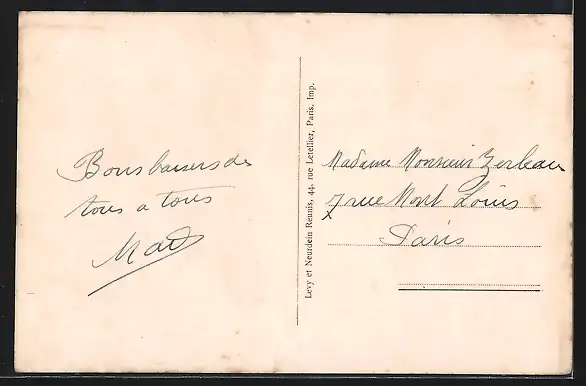 Bons baisers de
tous a tous
Mad
Levy et Neurdein Reunis, 44, rue Letellier, Paris. Imp.
Madame Monsieur Zerleau
7 rue Mont Louis
Paris